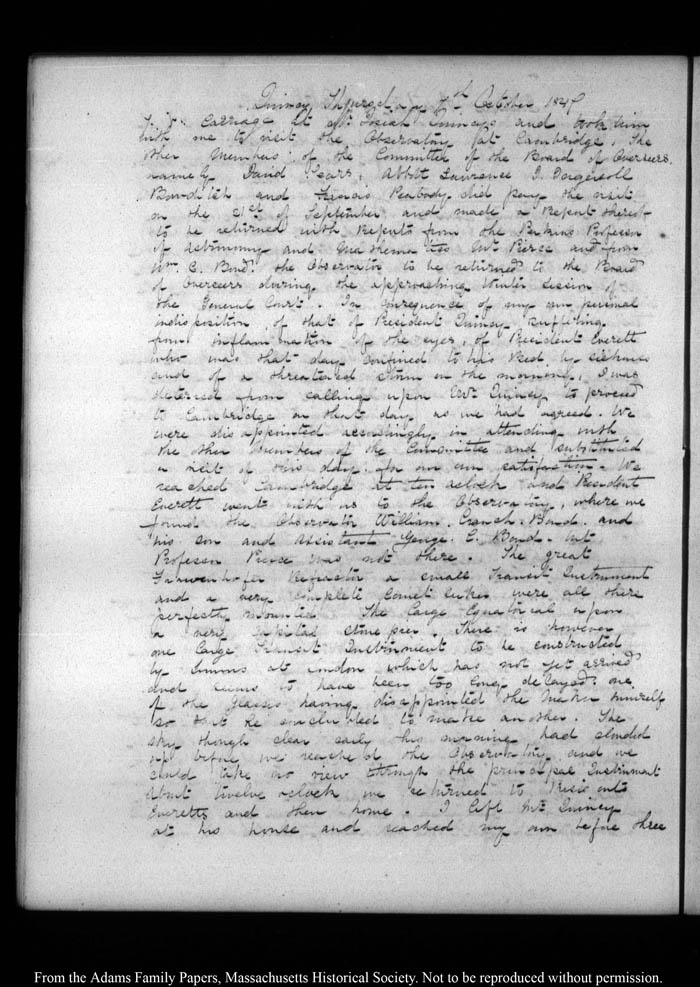 Quincy Thursday 7th October 1847
Carriage at Mr. Josiah Quincys and took him
with me to visit the Observatory at Cambridge. The
other Members of the Committee of the Board of Overseers,
namely David Sears, Abbott Lawrence J. Ingersoll
Bowditch and Francis Peabody did pay the visit
on the 21st of September and made a Report thereof
to be returned with Reports from the Perkins Professor
of Astronomy and Mathematics Mr Peirce and from
Wm. C. Bond. the Observator to be returned to the Board
of Overseers during the approaching Winter Session of
the General Court. In consequence of my own personal
indisposition, of that of President Quincy, suffering
from inflammation of the eyes, of President Everett
who was that day confined to his bed by sickness
and of a threatened storm in the morning, I was
deterred from calling upon Mr Quincy to proceed
to Cambridge on that day as we had agreed. We
were disappointed accordingly in attending with
the other Members of the Committee and substituted
a visit of this day for our own satisfaction. We
reached Cambridge at ten oclock and President
Everett went with us to the Observatory, where we
found the Observator William. Cranch. Bond. and
his son and assistant George. P. Bond. but
Professor Peirce was not there. The great
Refractor a small Transit Instrument
and a very complete Comet seeker were all there
perfectly mounted The large Equatorial upon
a very capital stone pier. There is however
one large Transit Instrument to be constructed
by Simms at London which has not yet arrived
and seems to have been too long delayed; one
of the glasses having disappointed the Maker himself
so that he concluded to make another. The
sky though clear early this morning had clouded
up before we reached the Observatory and we
could take no view through the principal Instrument
About twelve oclock we returned to President
Everetts and then home. I left Mr Quincy
at his house and reached my own before three
From the Adams Family Papers, Massachusetts Historical Society. Not to be reproduced without permission.